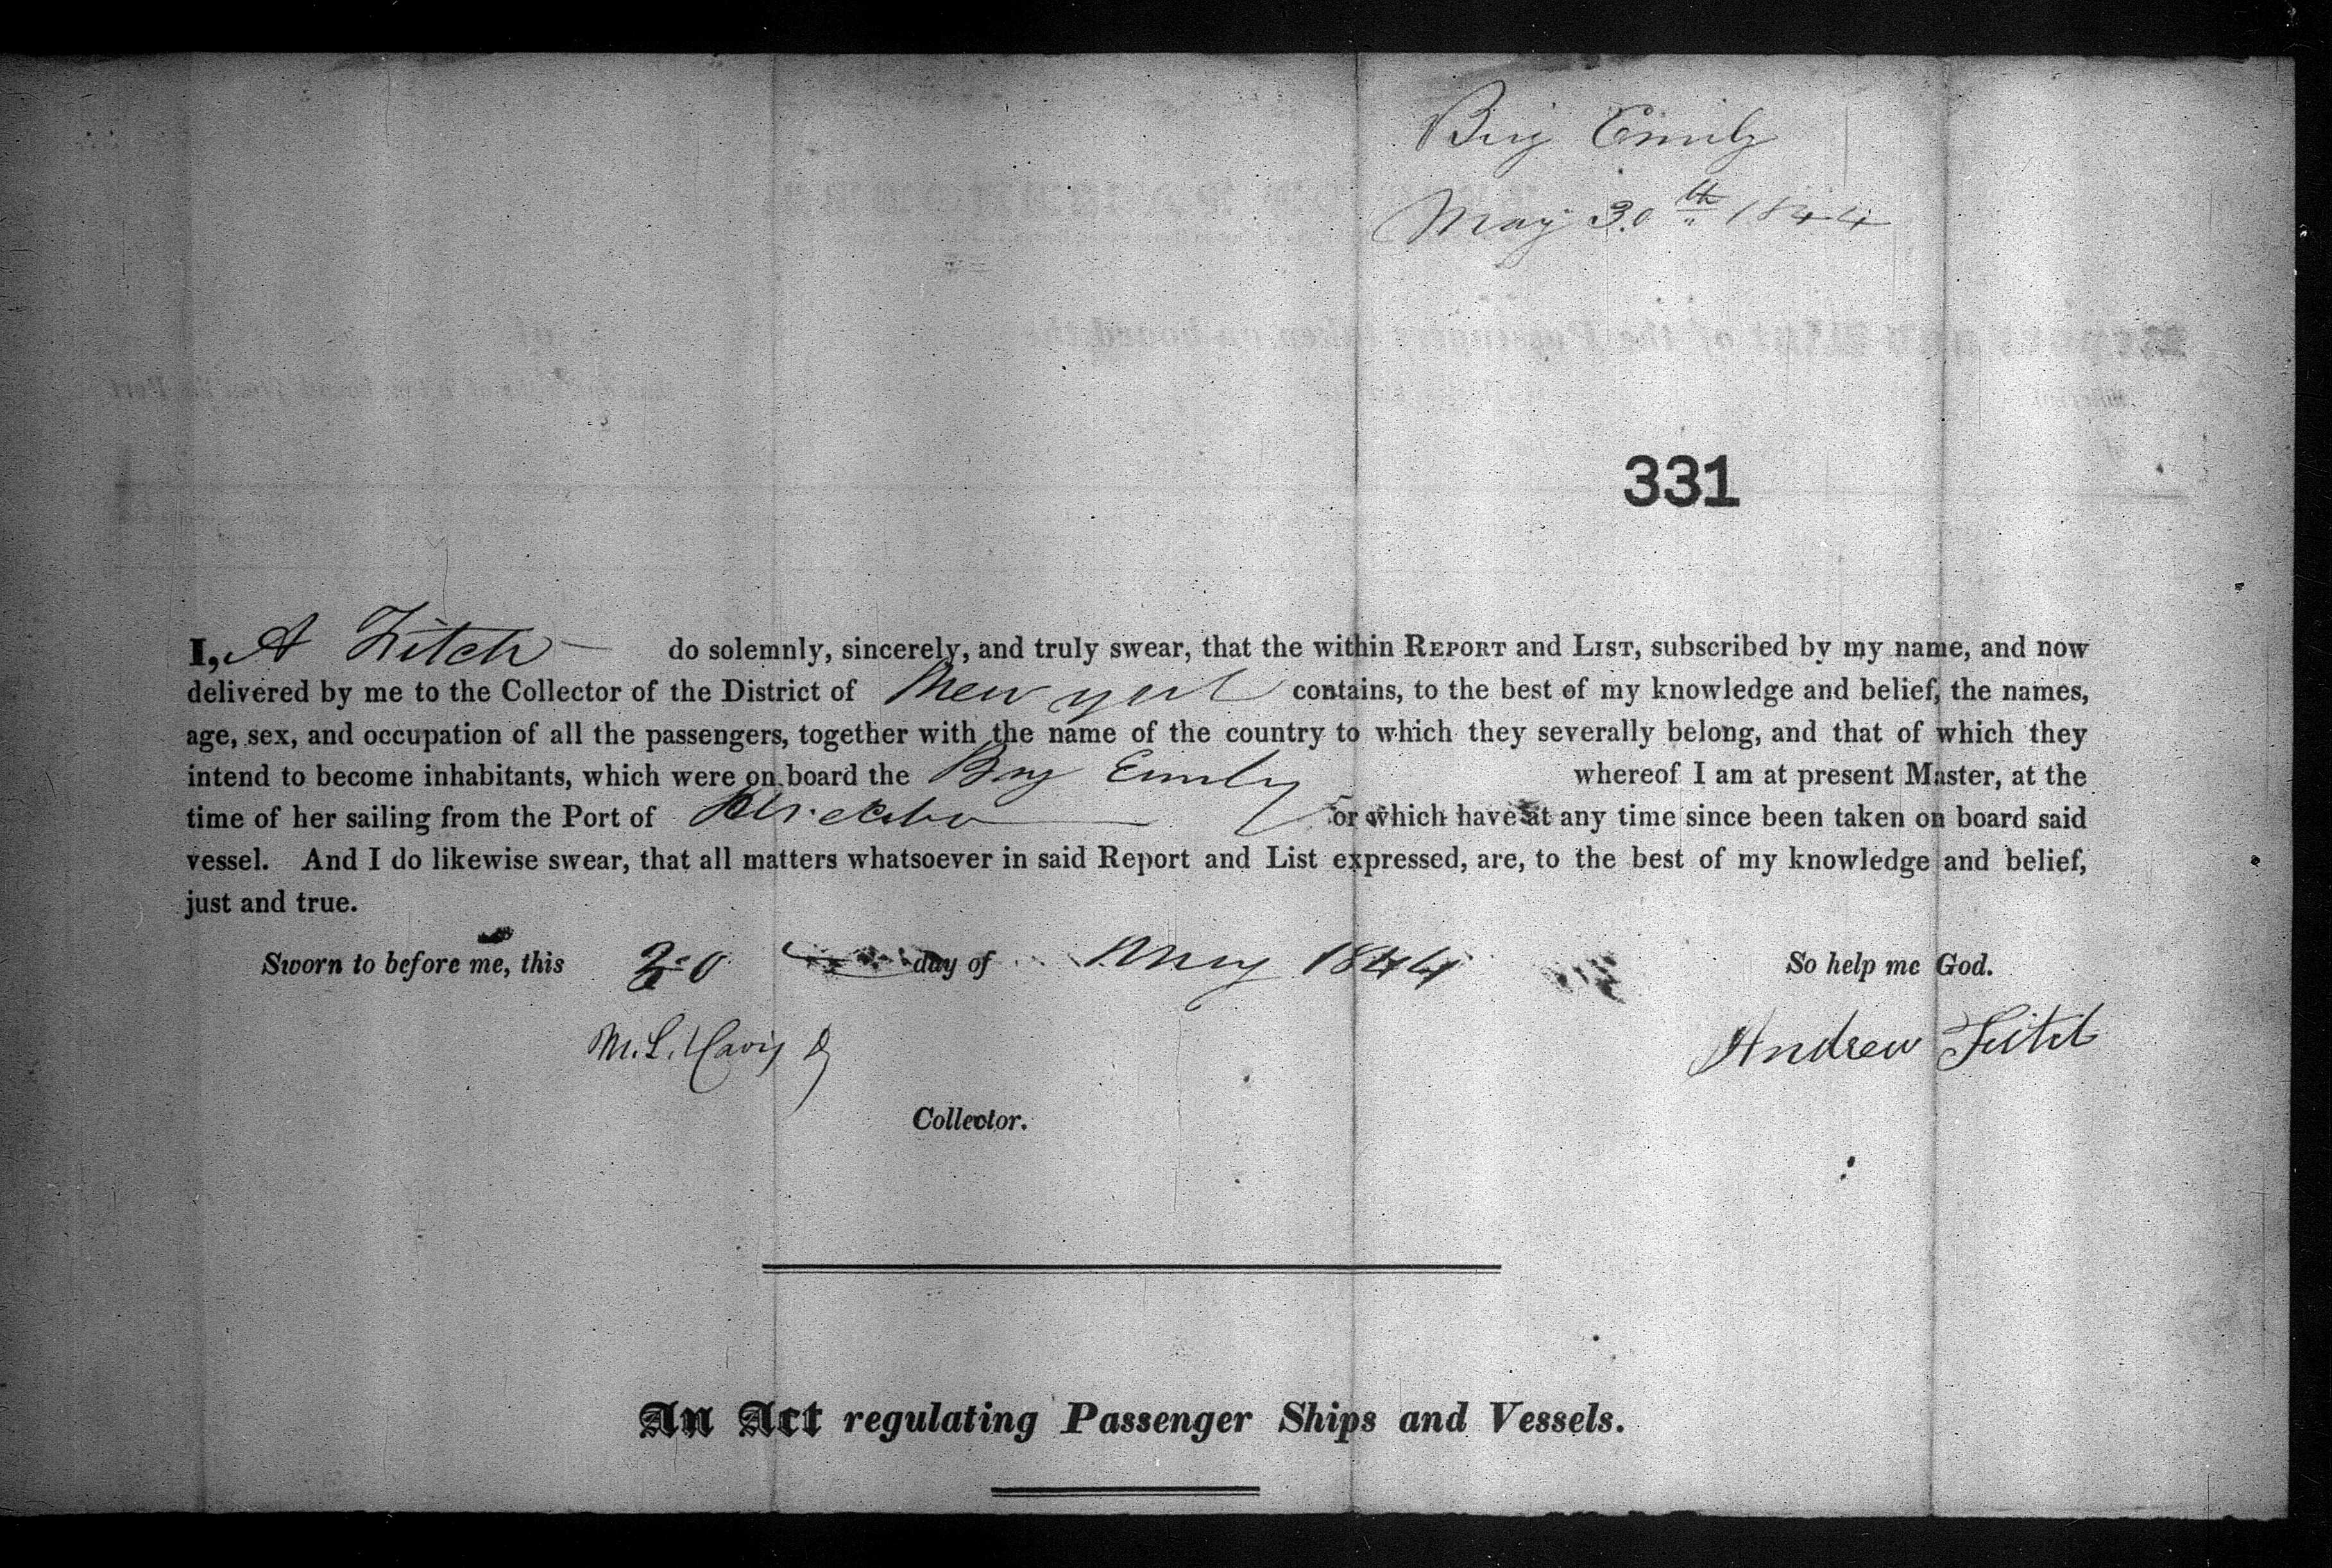 Brig Emily
May 30th 1844
331
I, A Fitch do solemnly, sincerely, and truly swear, that the within REPORT and LIST, subscribed by my name, and now
delivered by me to the Collector of the District of New york contains, to the best of my knowledge and belief, the names,
age, sex, and occupation of all the passengers, together with the name of the country to which they severally belong, and that of which they
intend to become inhabitants, which were on board the Brig Emily whereof I am at present Master, at the
time of her sailing from the Port of or which have at any time since been taken on board said
vessel. And I do likewise swear, that all matters whatsoever in said Report and List expressed, are, to the best of my knowledge and belief,
just and true.
Sworn to before me, this 30 day of May 1844 So help me God.
M. L. Davis Andrew Fitch
Collector.
An Act regulating Passenger Ships and Vessels.